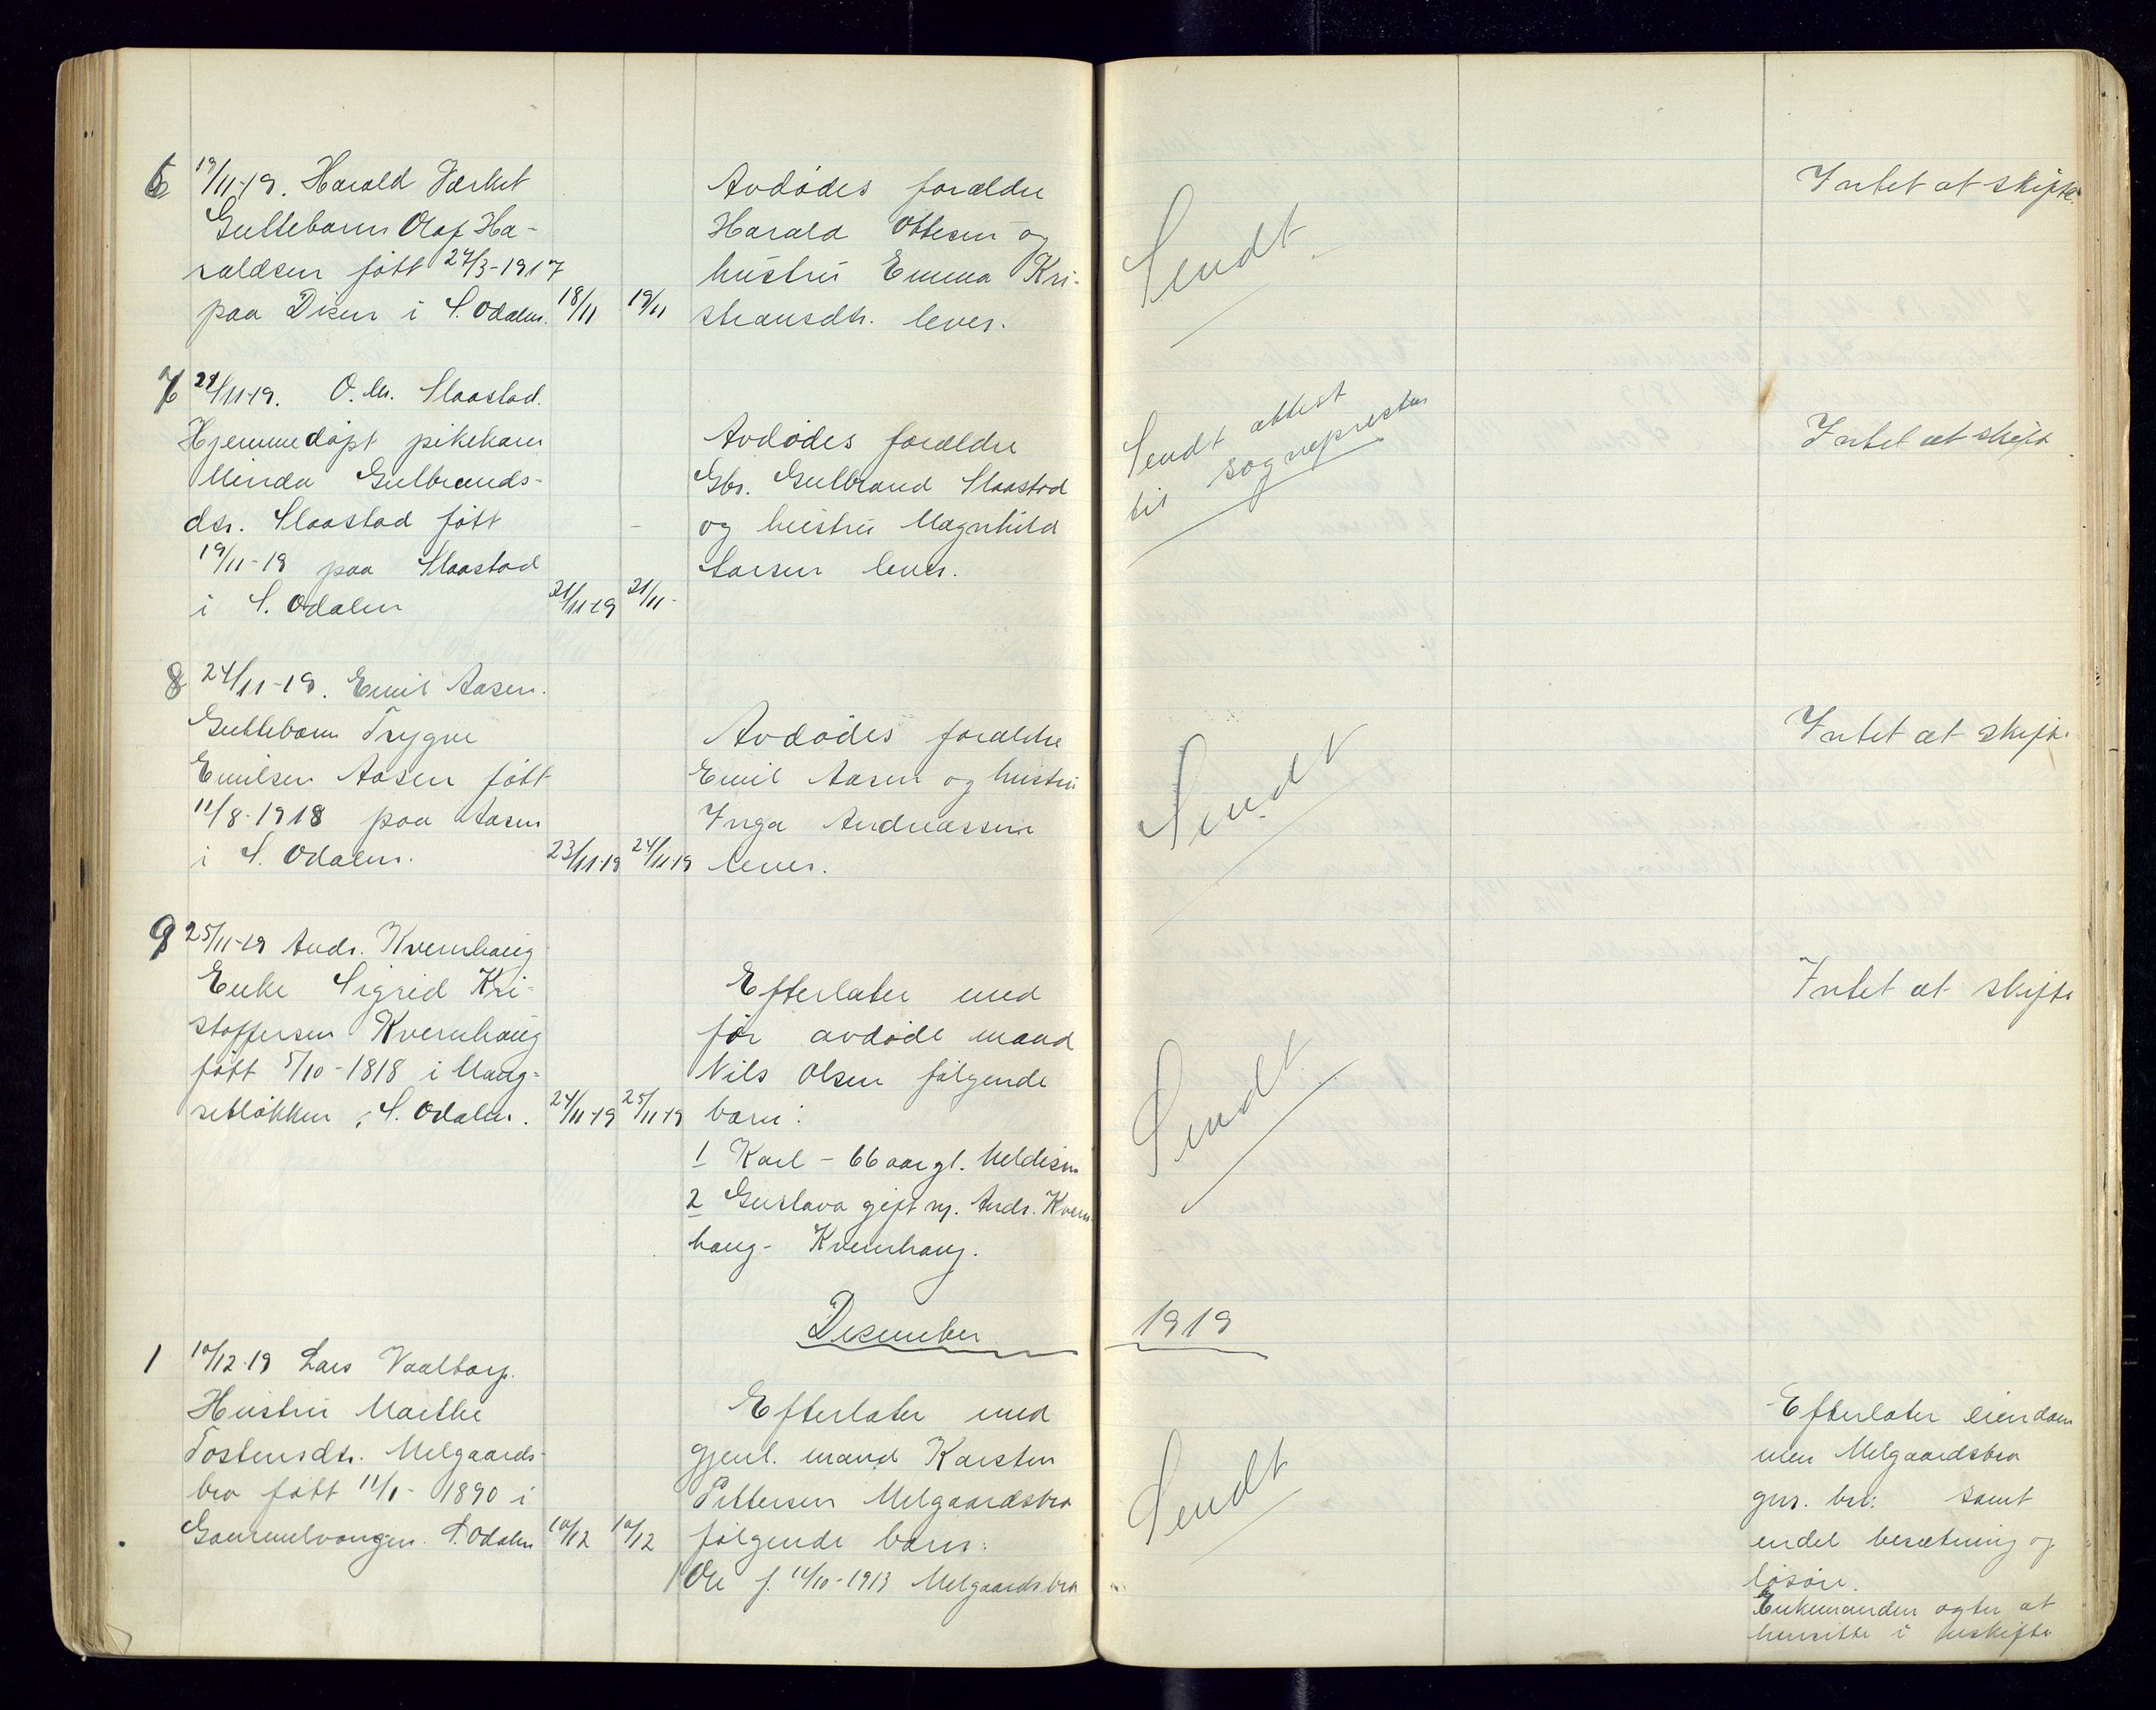 6 19/11-19. Harald Værket
Guttebarn Olaf Ha-
raldsen født 27/3-1917
paa Disen i S. Odalen. 18/11 19/11
Avdødes forældre
Harald Ottesen og
hustru Emma Kri-
stiansdtr. lever.
Sendt
Intet at skifte.
7 28/11-19. O. M. Slaastad.
Hjemmedøpt pikebarn
Minda Gulbrands-
dtr. Slaastad født
19/11-19 paa Slaastad
i S. Odalen 21/11-19 21/11-
Avdødes forældre
Gbr. Gulbrand Slaastad
og hustru Magnhild
Larsen lever.
Sendt attest
til sognepresten
Intet at skifte
8 24/11-19. Emil Aasen.
Guttebarn Trygve
Emilsen Aasen født
11/8-1918 paa Aasen
i S. Odalen. 23/11-19 24/11-19
Avdødes forældre
Emil Aasen og hustru
Inga Andreassen
lever.
Sendt
Intet at skifte.
9 25/11-19 Andr. Kvernhaug
Enke Sigrid Kri-
stoffersen Kvernhaug
født 5/10-1818 i Maag-
setløkken, S. Odalen. 24/11-19 25/11-19
Efterlater med
før avdøde mand
Nils Olsen følgende
barn:
1 Karl - 66 aar gl. Meldisen
2 Gustava gift m. Andr. Kvern-
haug - Kvernhaug.
Sendt
Intet at skifte
Desember 1919
1 10/12-19 Lars Vaaltorp.
Hustru Marthe
Tostensdtr. Melgaards-
bra født 11/1-1890 i
Gammelvangen. S. Odalen 10/12 10/12
Efterlater med
gjenl. mand Karsten
Pettersen Melgaardsbra
følgende barn:
1 Ole f. 14/10-1913 Melgaardsbra
Sendt
Efterlater eiendom
men Melgaardsbra
gnr. bnr: samt
endel besætning og
løsøre.
Enkemanden agter at
hensitte i uskifte